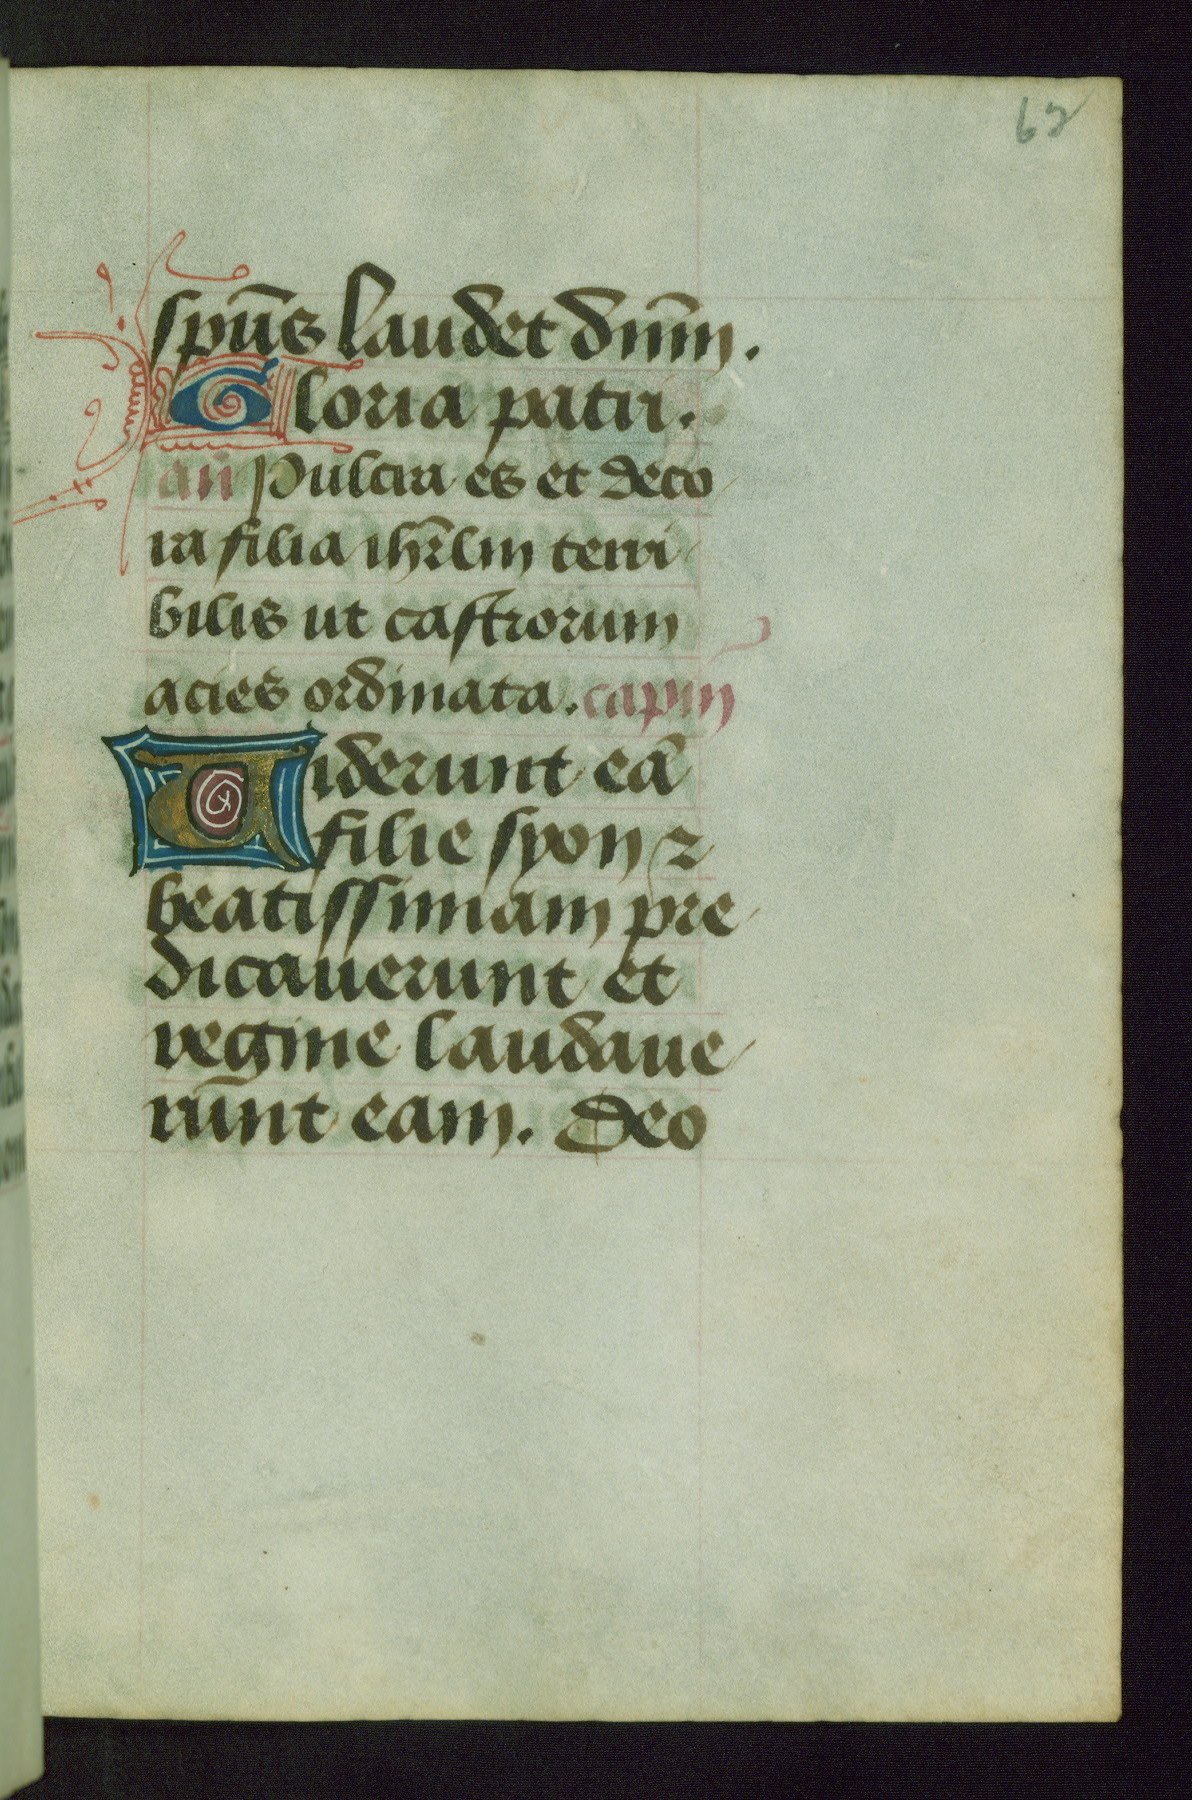 62
spūs laudet dnm̄.
Gloria patri.
añ Pulcra es et deco
ra filia ihr̄lm terri
bilis ut castrorum
acies ordinata. capm
Viderunt eā
filie syon ⁊
beatissimam pre
dicauerunt et
regine laudaue
rūnt eam. Deo